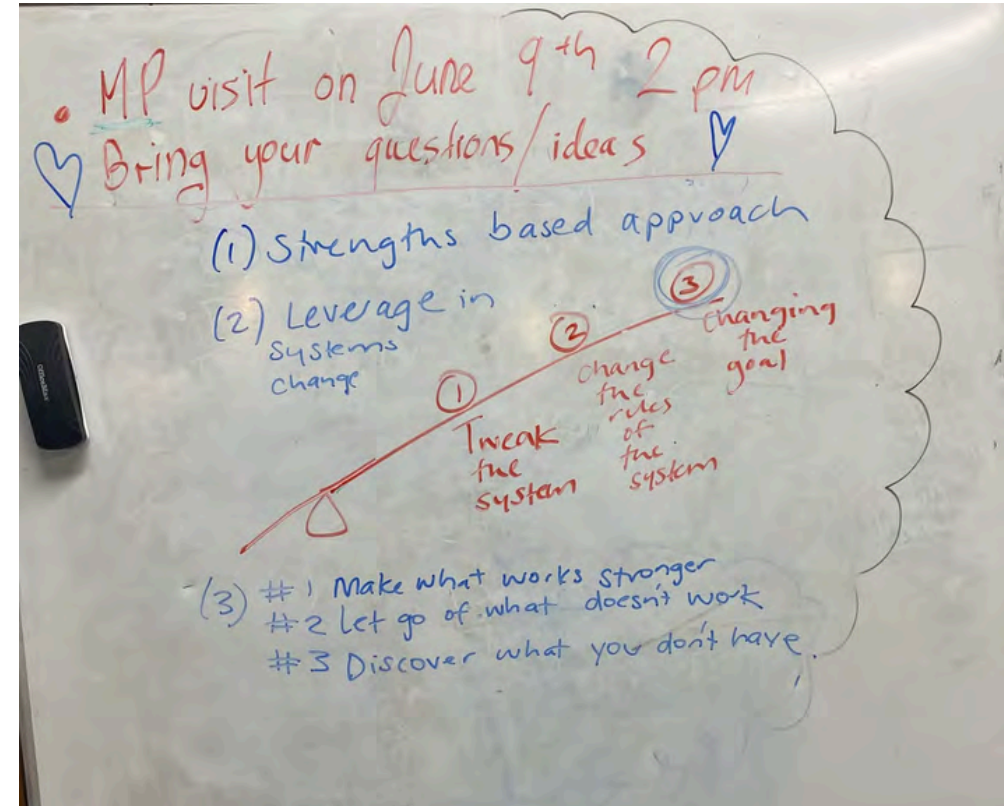 • MP visit on June 9th 2 pm
Bring your questions/ideas
(1) Strengths based approach
(2) Leverage in
systems
change
①
Tweak
the
system
②
change
the
rules
of
the
system
③
changing
the
goal
(3) #1 Make what works stronger
#2 Let go of what doesn't work
#3 Discover what you don't have.